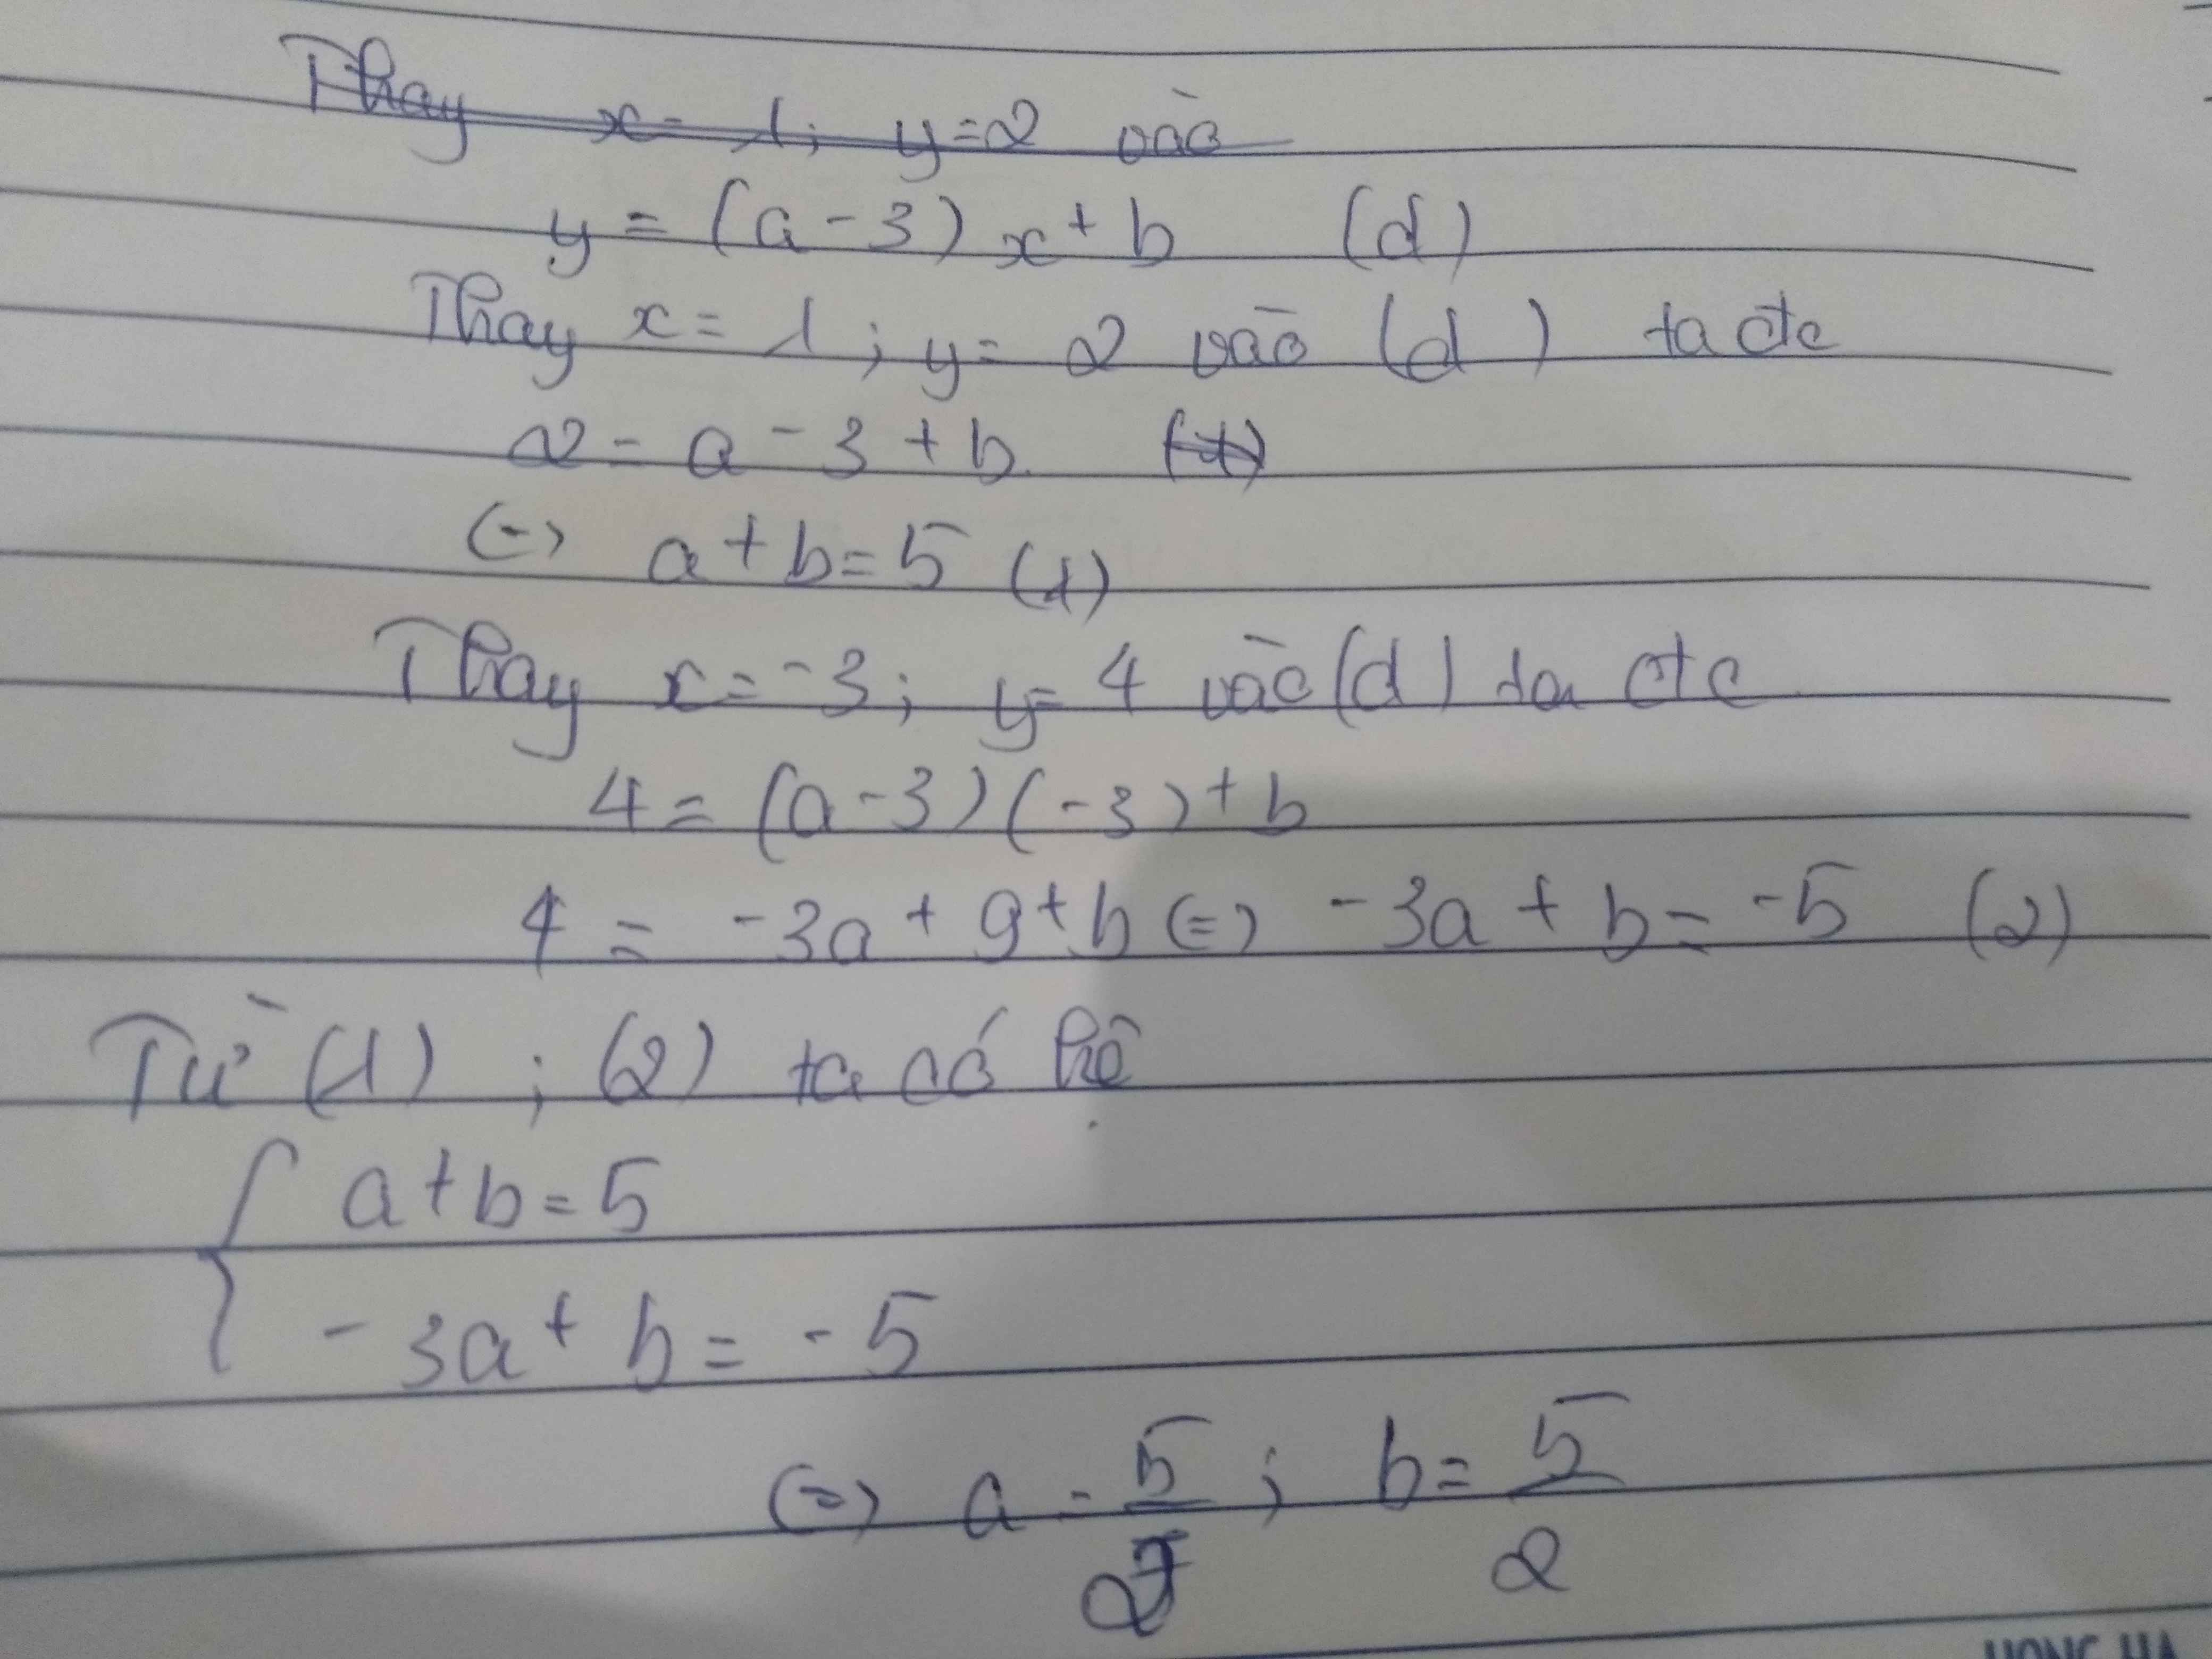 Thay x = 1; y = 2 vào
y = (a - 3) x + b (d)
Thay x = 1; y = 2 vào (d) ta đc
2 = a - 3 + b (1)
<=> a + b = 5 (1)
Thay x = -3; y = 4 vào (d) ta đc
4 = (a - 3)(-3) + b
4 = -3a + 9 + b <=> -3a + b = -5 (2)
Từ (1); (2) ta có hệ
{ a + b = 5
-3a + b = -5
<=> a = 5/2; b = 5/2